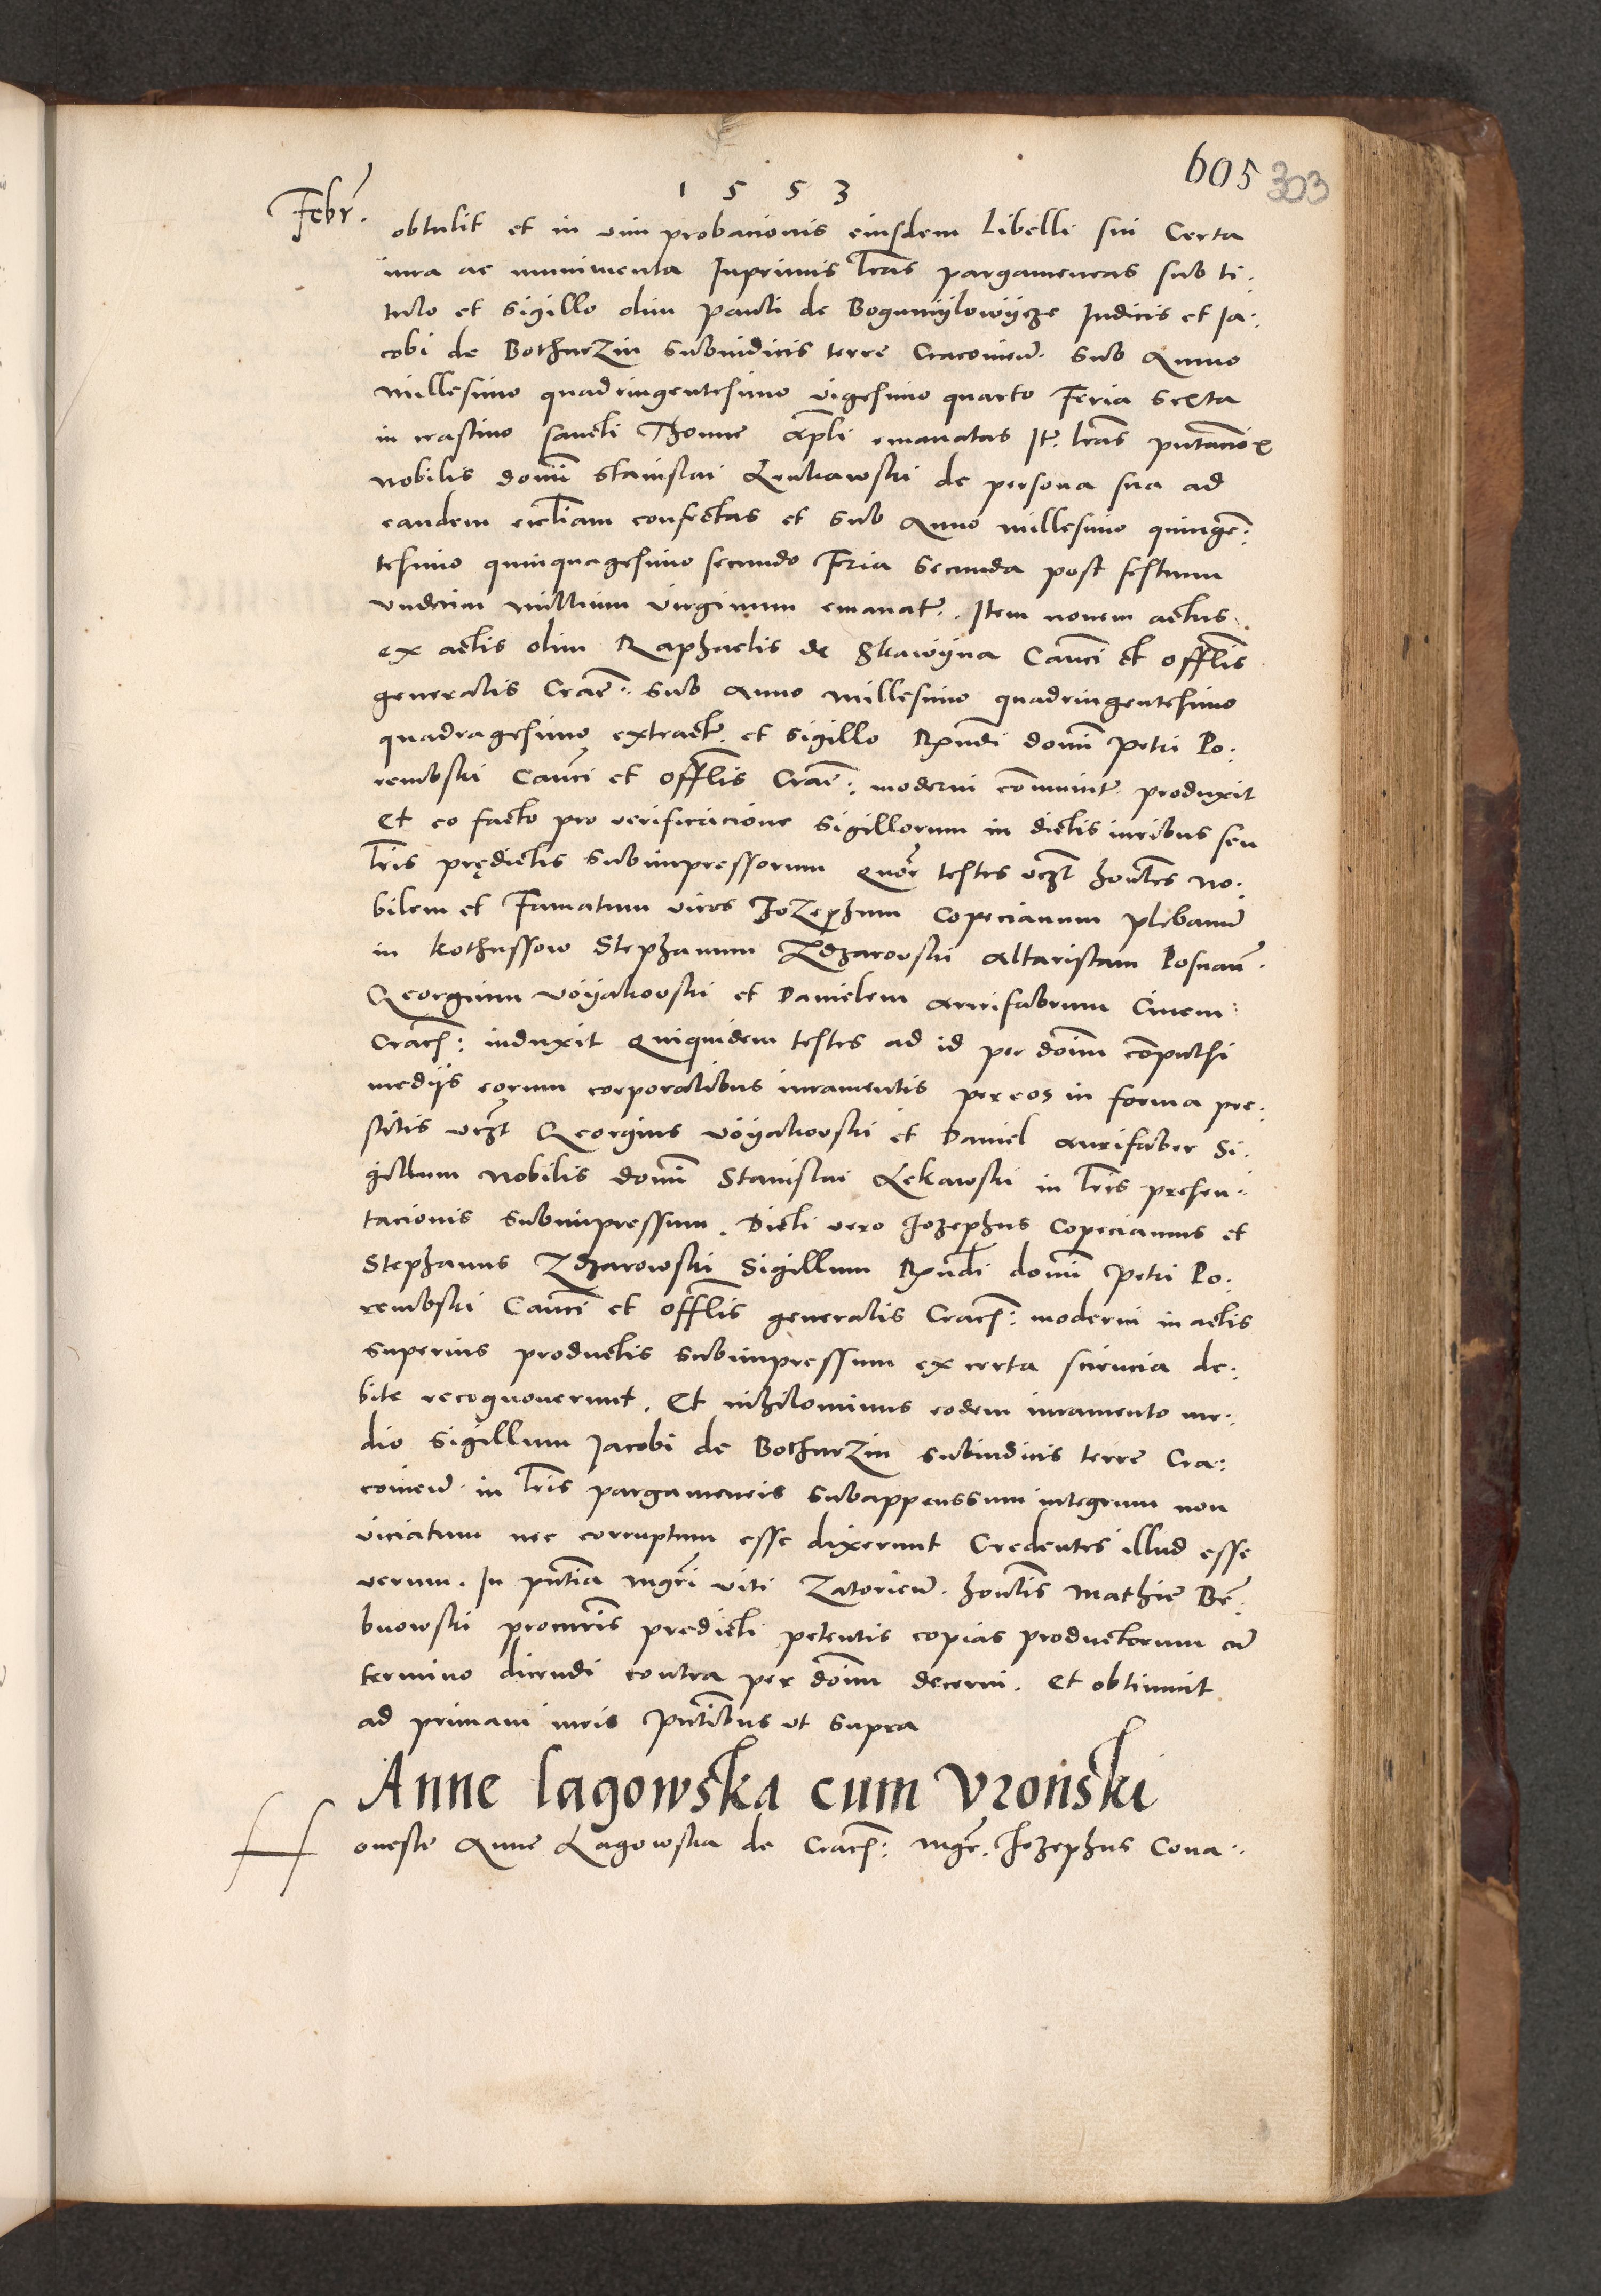 605 303
1 5 5 3
Febr̃.
obtulit et in vim probacionis eiusdem Libelli sui Certa
iura ac munimenta Inprimis l̃ras pargameneas sub ti:
tulo et sigillo olim Pauli de Bogumylowÿcze Iudicis et Ia:
cobi de Bothurzin subiudicis terre Cracovien̄. sub Anno
millesimo quadringentesimo vigesimo quarto Feria sexta
in crastino sancti Thome Ap̃li emanatas It. l̃ras pñtacio
nobilis domĩ Stanislai Lenkawski de persona sua ad
eandem eccl̃iam confectas et sub Anno millesimo quingẽ:
tesimo quinquagesimo secundo Feria secunda post festum
vndecim millium virginum emanat. Item novem actus
ex actis olim Raphaelis de Skawÿna Canc̃i et offl̃is
generalis Crac̃: sub anno millesimo quadringentesimo
quadragesimo extract. et sigillo Rxñdi domĩ Petri Po:
rembski Canc̃i et Offl̃is Crac̃: moderni com̃unit. produxit
Et eo facto pro verificacione sigillorum in dictis iuribus seu
l̃ris prędictis subimpressorum quor̃ testes vcz̃t hon̄les no:
bilem et Famatum viros Jozephum Copecianum plebanũ
in Kothussow Stephanum Zdzarowski Altaristam Posnan̄.
Georgium voÿakovski et Danielem aurifabrum Civem
Crac̃: induxit Quiquidem testes ad id per dom̃ compulsi
medÿs eorum corporalibus iuramentis per eos in forma pre:
stitis vcz̃t Georgius voÿakovski et Daniel aurifaber Si:
gillum nobilis domĩ Stanislai Lekawski in l̃ris presen:
tacionis subimpressum. Dicti vero Jozephus Copecianus et
Stephanus Zdzarowski Sigillum Rxñdi domĩ Petri Po:
rembski Canc̃i et offl̃is generalis Crac̃: moderni in actis
superius productis subimpressum ex certa sciencia de:
bite recognoverunt. Et nihilominus eodem iuramento me:
dio sigillum Jacobi de Bothurzin subiudicis terre Cra:
covien̄. in l̃ris pargameneis subappenssum integrum non
viciatum nec corruptum esse dixerunt Credentes illud esse
verum. In pñtia mgr̃i viti Zatorien̄. hon̄lis Mathie Bẽ:
bnowski procur̃is predicti petentis copias productorum cũ
termino dicendi contra per dom̃ decerni. Et obtinuit
ad primam iuris Pñtibus vt supra
Anne Lagowska cum Vronski
Honeste Anne Lagowska de Crac̃: mgr̃. Jozephus Cona: